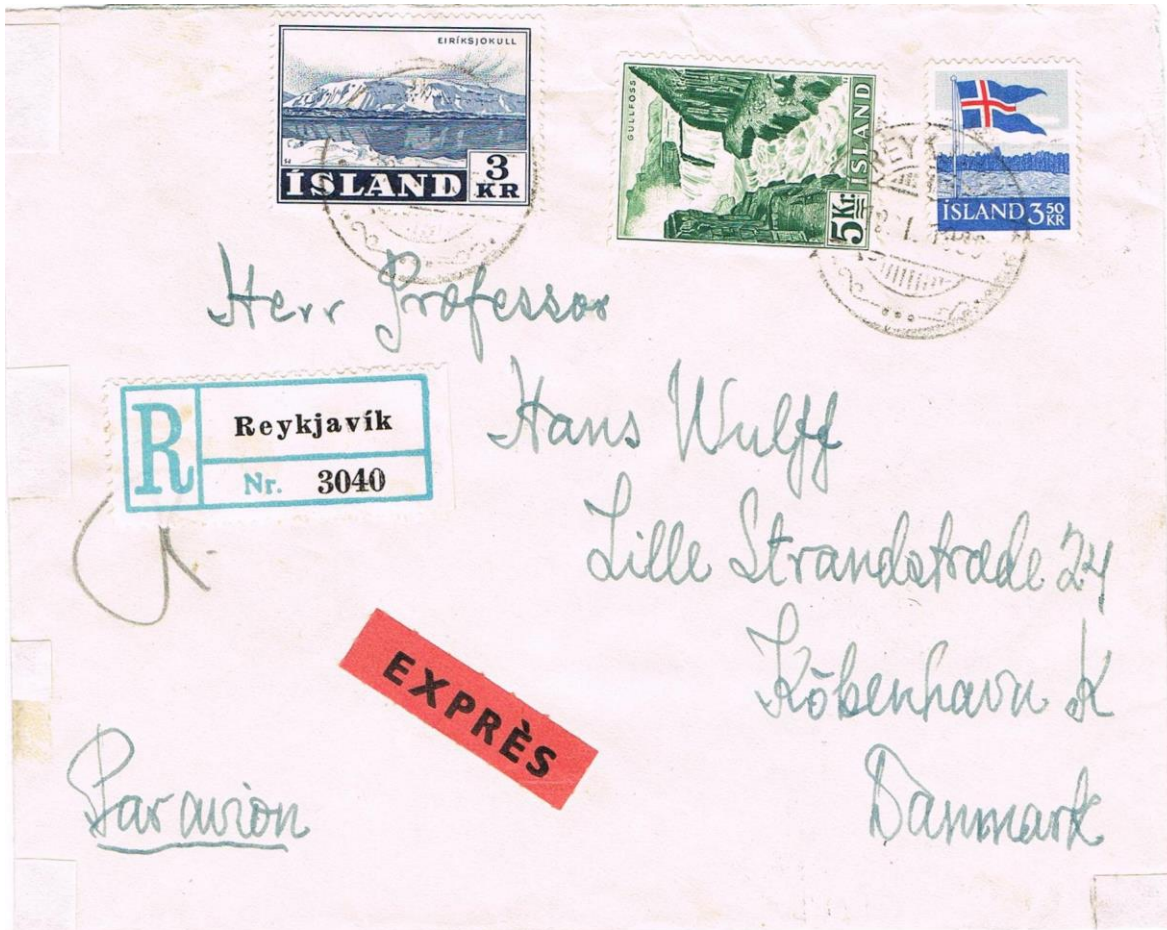 EIRÍKSJOKULL
ÍSLAND 3 KR
GULLFOSS
ÍSLAND
5 Kr.
ÍSLAND 3 50 KR
REYK
Herr Professor
R
Reykjavík
Nr. 3040
Hans Wulff
Lille Strandstræde 24
Köbenhavn K
EXPRÈS
Par avion
Danmark